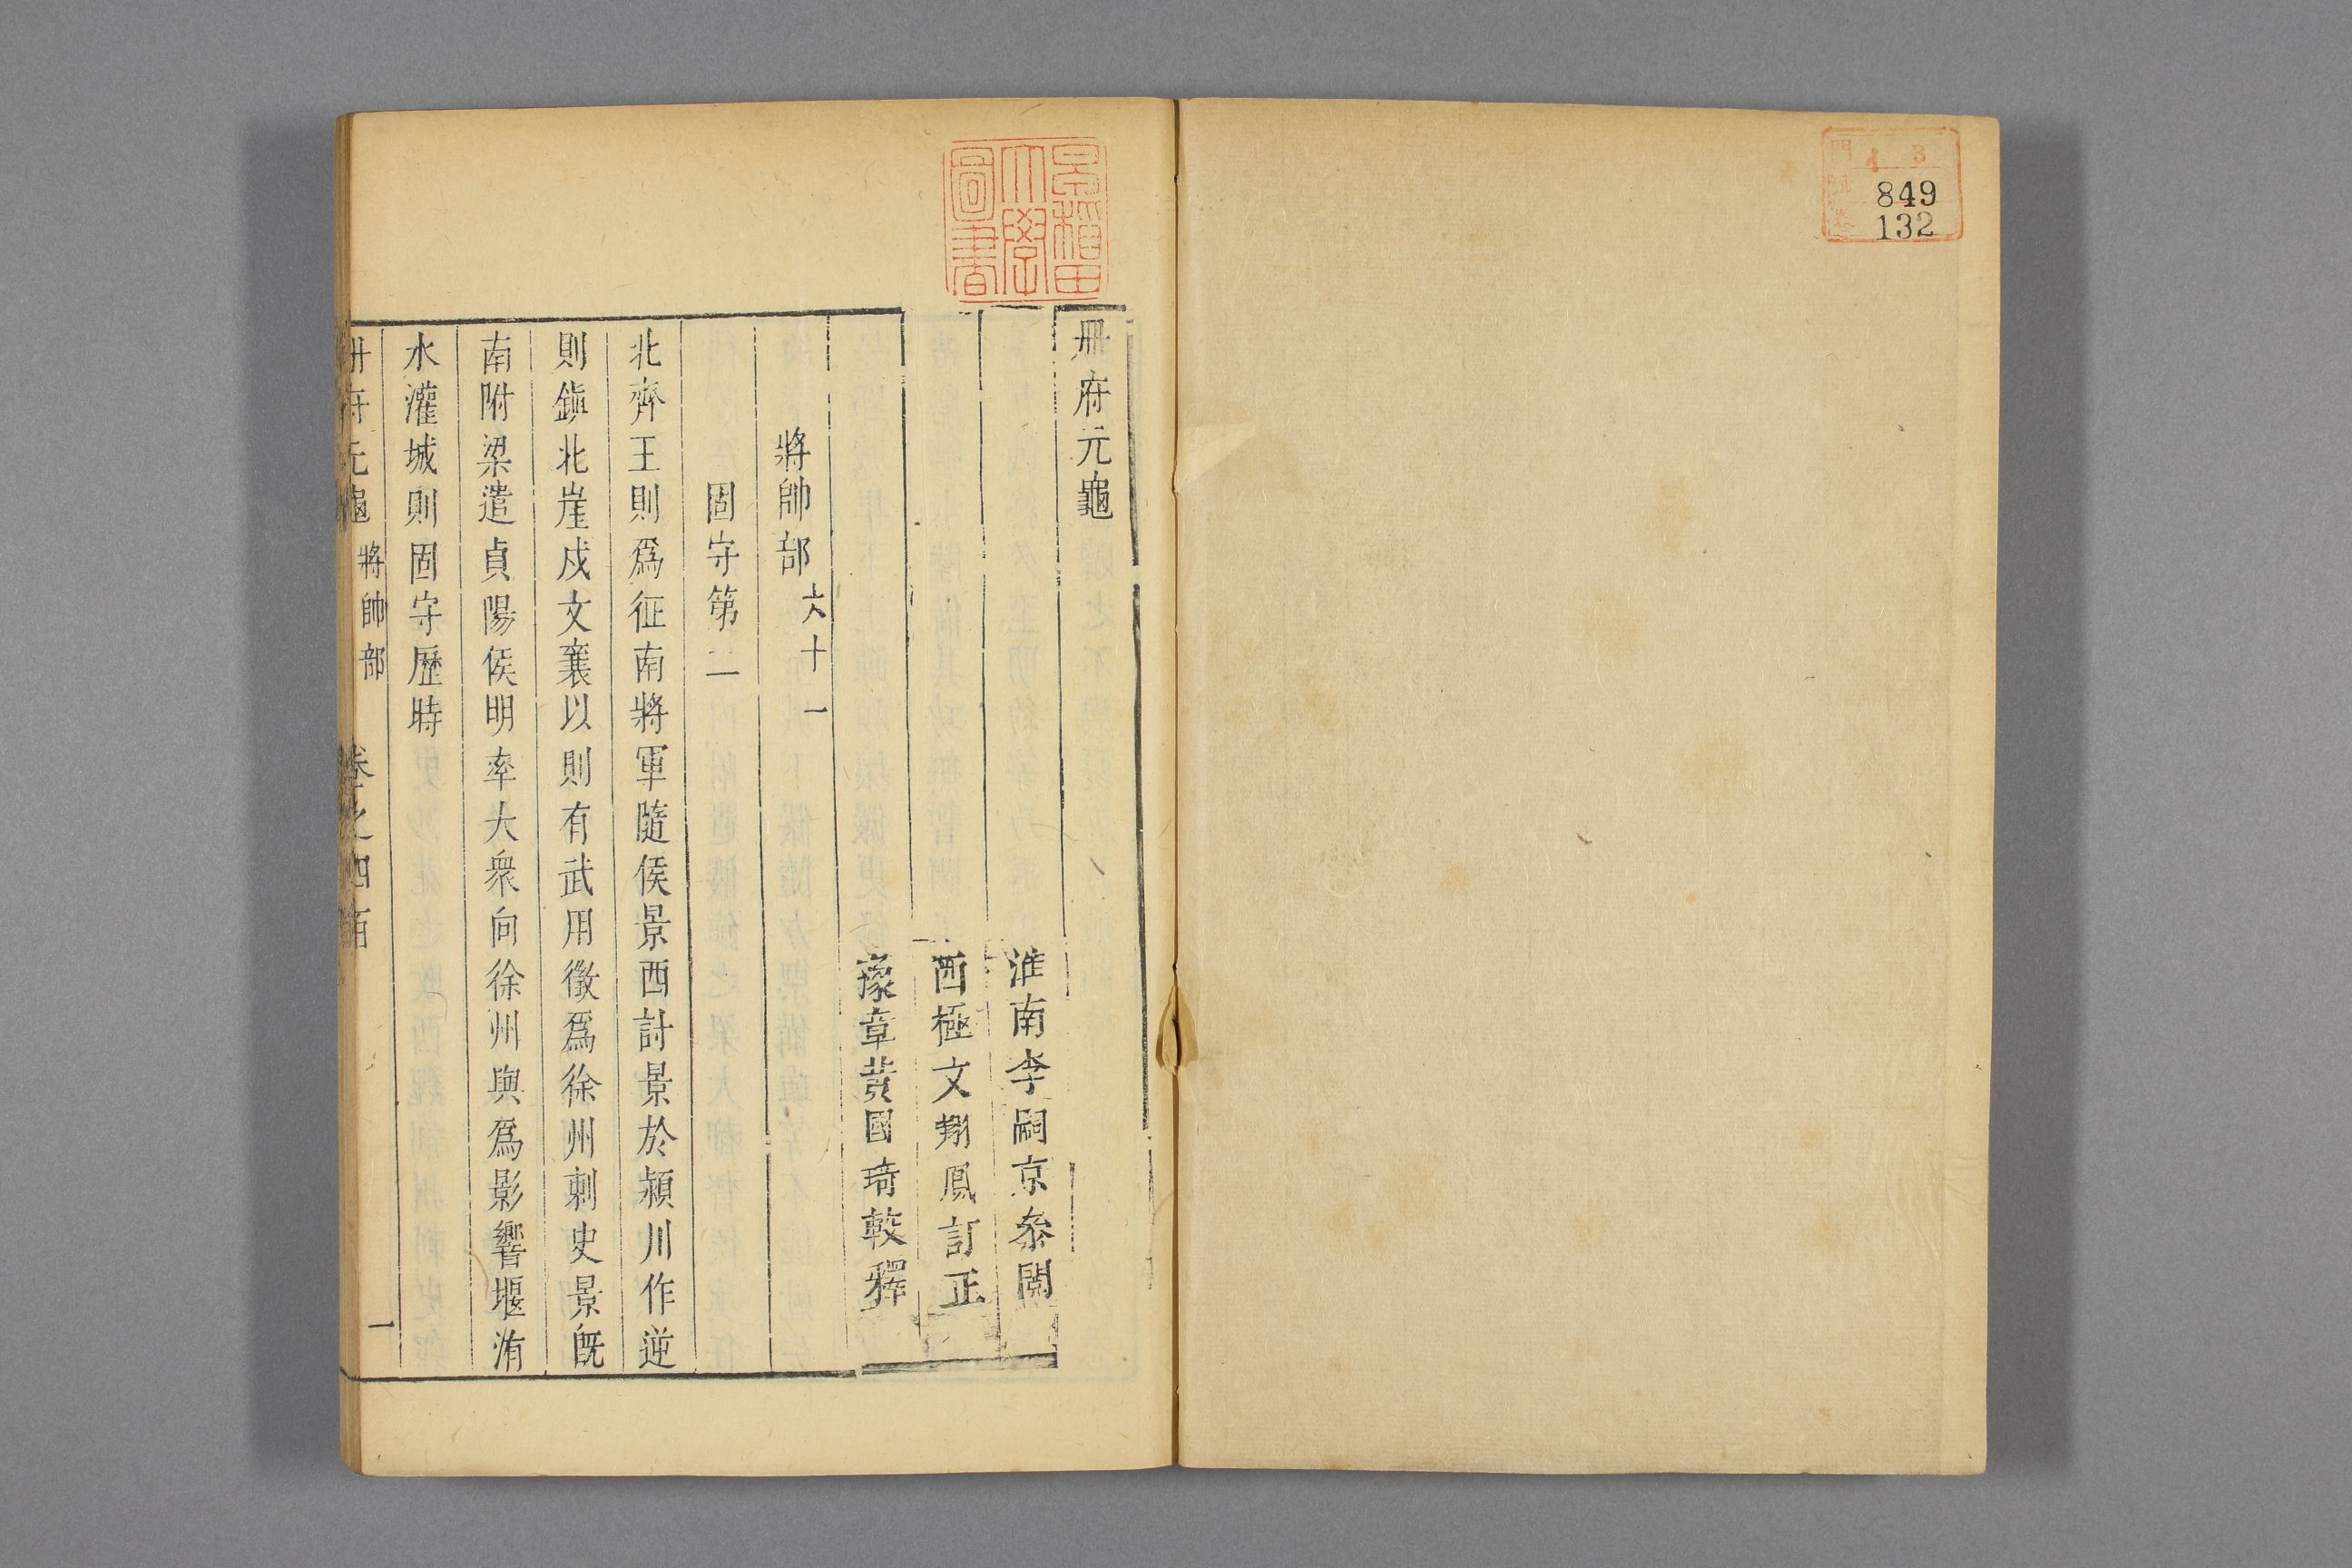 門 3
849
132
早稲田
大學
圖書
冊府元龜
淮南李嗣京叅閱
西極文翔鳳訂正
豫章黃國琦較釋
將帥部 六十一
固守第二
北齊王則爲征南將軍隨侯景西討景於潁川作逆
則鎭北崖戍文襄以則有武用徵爲徐州刺史景旣
南附梁遣貞陽侯明率大衆向徐州與爲影響堰洧
水灌城則固守歷時
冊府元龜 將帥部 卷之四百 一